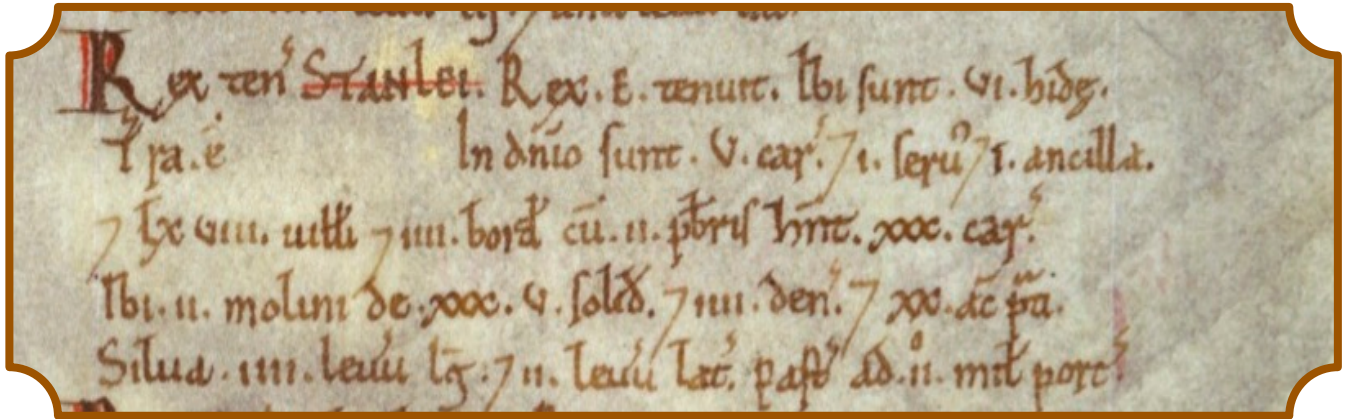 Rex ten' STANLEI. Rex. E. tenuit. Ibi sunt. VI. hidę.
T'ra. ē In dn̄io sunt. V. car'. ⁊ I. seru' ⁊ I. ancilla.
⁊ LX VIII. uilłi ⁊ IIII. bord' cū. II. p̄bris hn̄t. XXX. car'.
Ibi. II. molini de. XXX. V. solid'. ⁊ IIII. den'. ⁊ XX. ac̄ p̄ti.
Silua. IIII. leuu' lḡ. ⁊ II. leuu' lat'. past' ad. II. mił porc'.